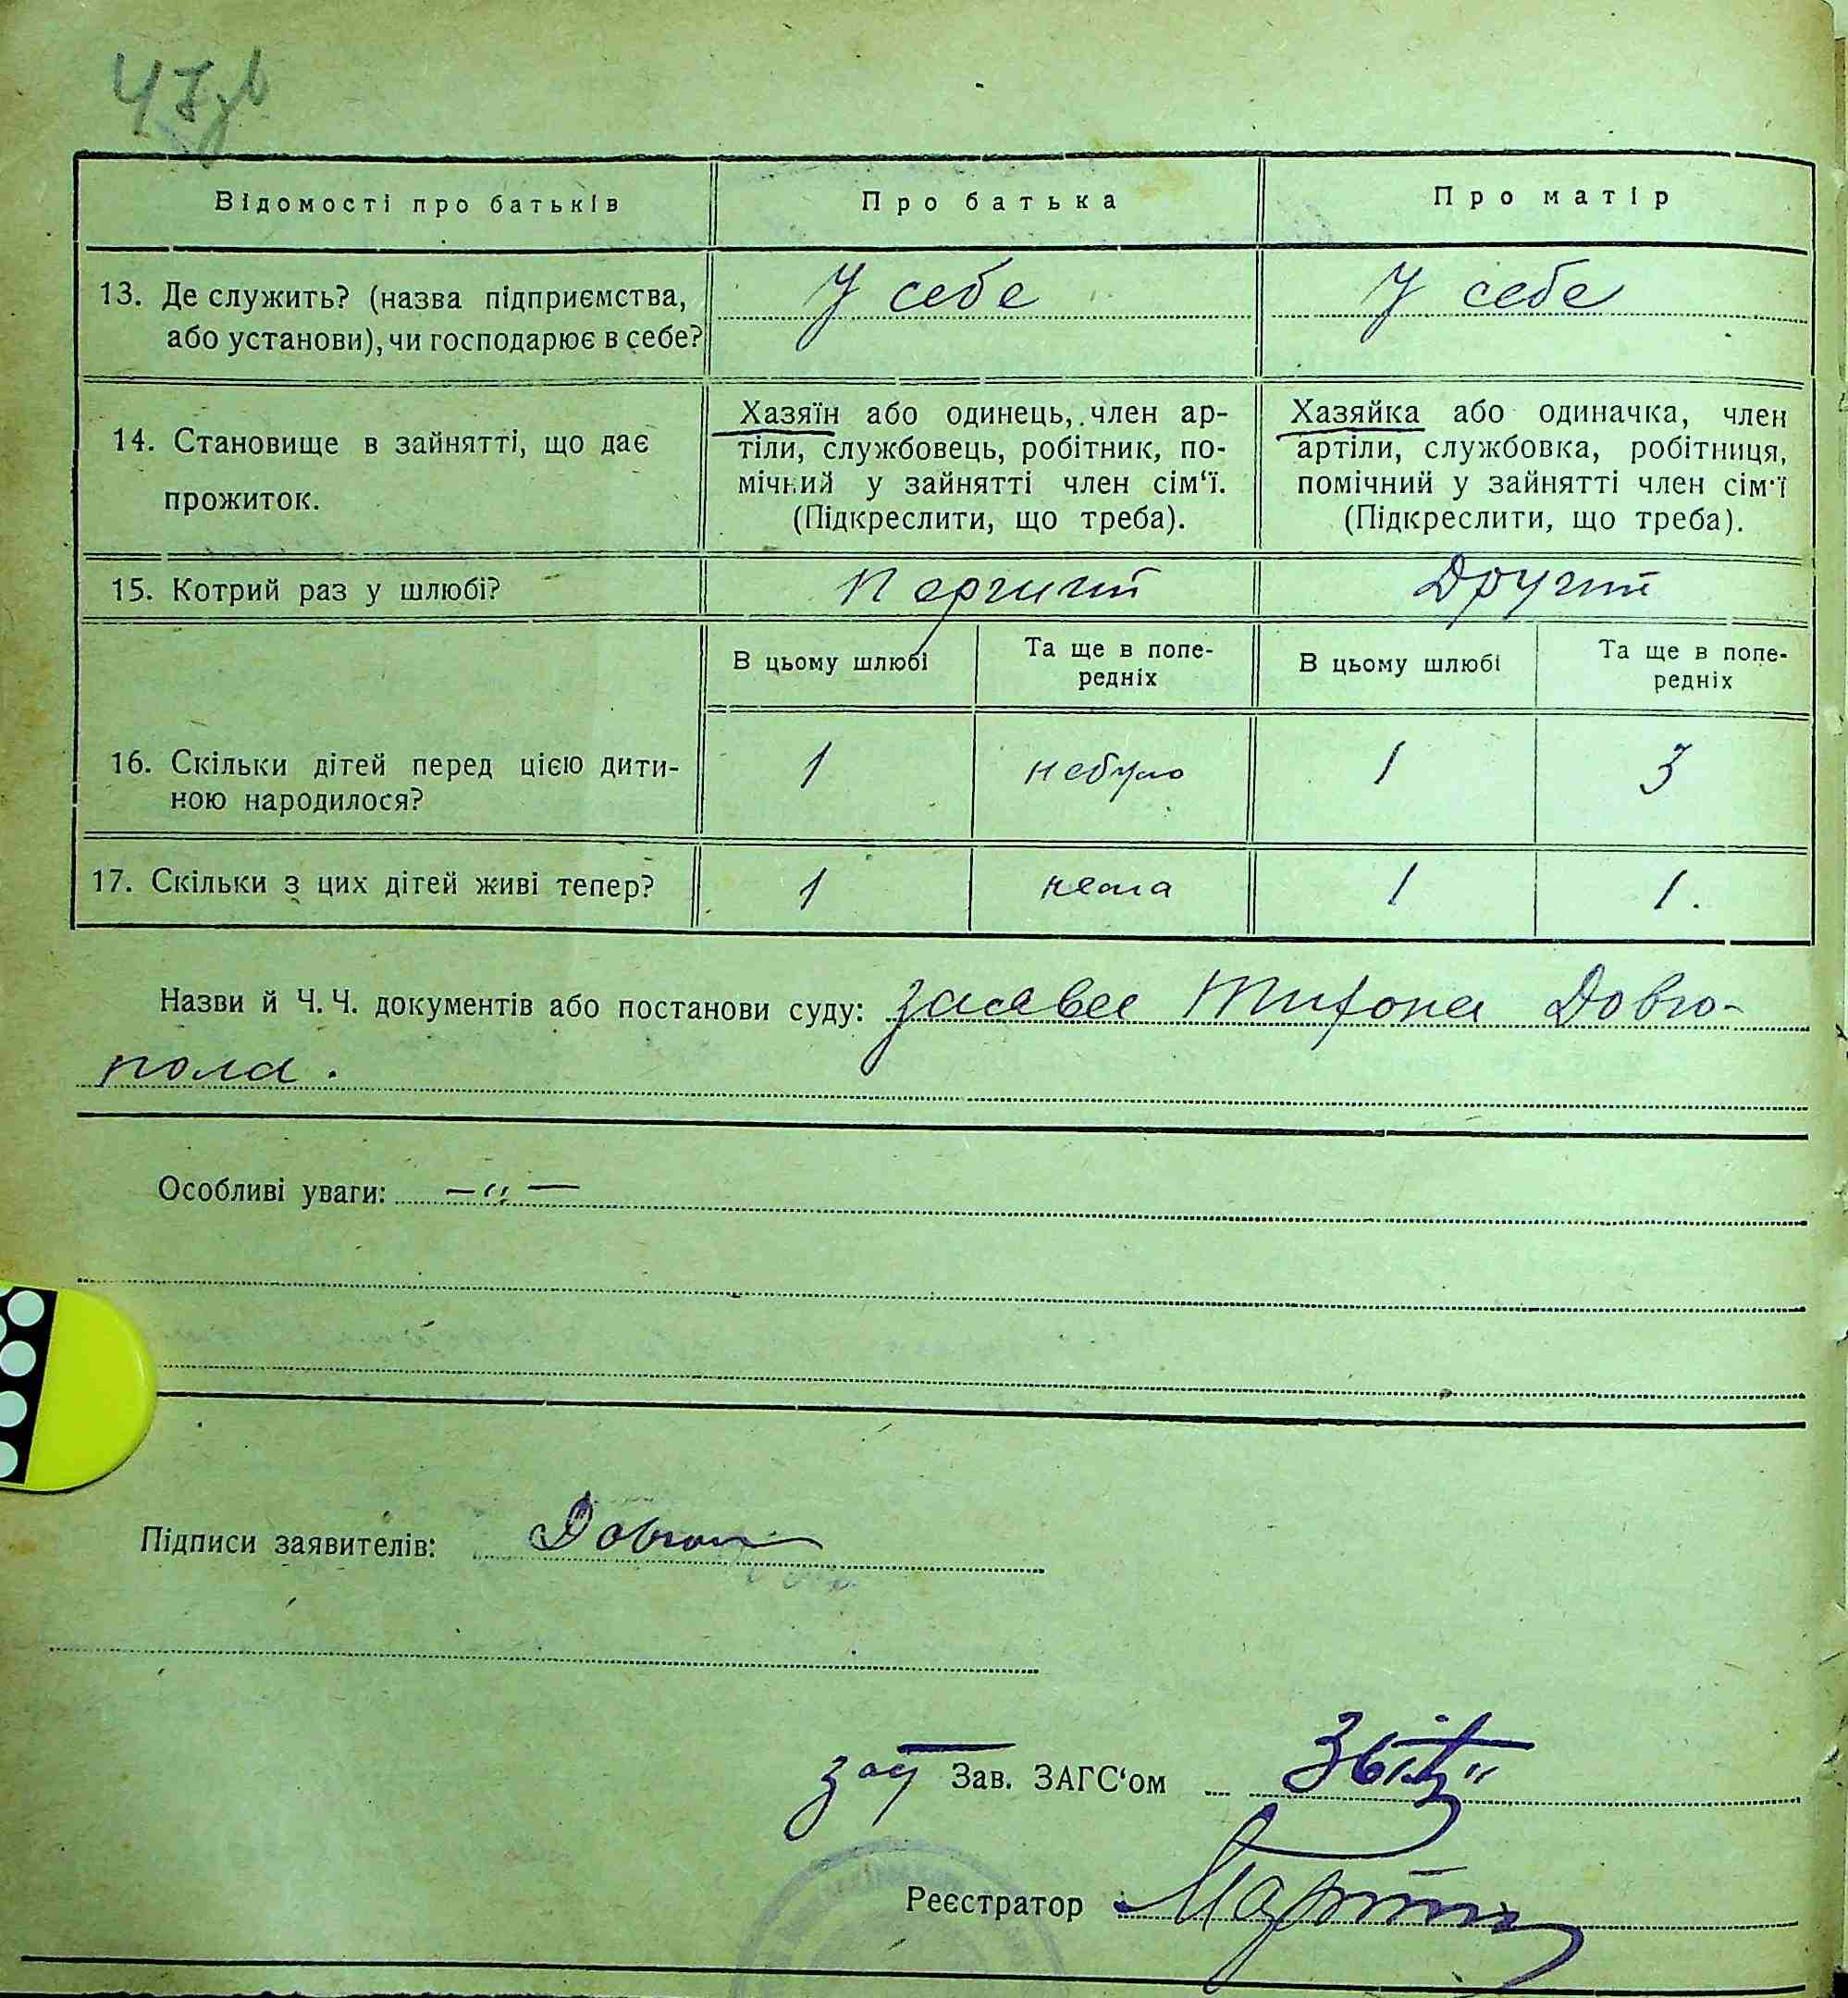 47зв
Відомості про батьків Про батька Про матір
13. Де служить? (назва підприємства, У себе У себе
або установи), чи господарює в себе?
14. Становище в зайнятті, що дає
прожиток.
Хазяїн або одинець, член ар-
тіли, службовець, робітник, по-
мічний у зайнятті член сім‘ї.
(Підкреслити, що треба).
Хазяйка або одиначка, член
артіли, службовка, робітниця,
помічний у зайнятті член сім‘ї
(Підкреслити, що треба).
15. Котрий раз у шлюбі? Перший Другий
В цьому шлюбі Та ще в попе-
редніх
В цьому шлюбі Та ще в попе-
редніх
16. Скільки дітей перед цією дити- 1 небуло 1 3
ною народилося?
17. Скільки з цих дітей живі тепер? 1 нема 1 1.
Назви й Ч.Ч. документів або постанови суду: заява Тихона Довго-
пола.
Особливі уваги: — „ —
Підписи заявителів:
Зав. ЗАГС‘ом
Реєстратор